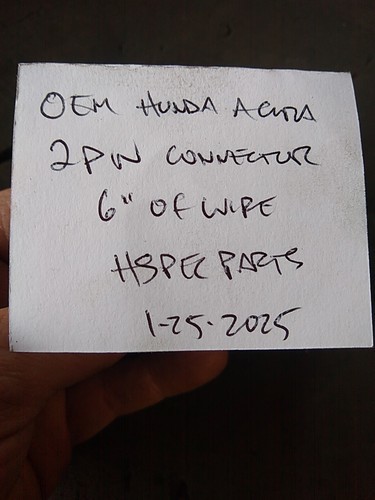 OEM HONDA ACURA
2 PIN CONNECTOR
6" OF WIRE
HSPEC PARTS
1-25-2025